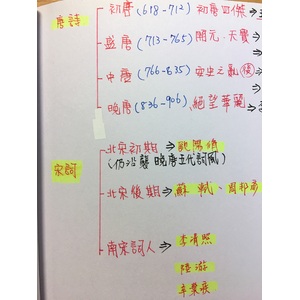 唐詩
初唐(618-712) 初唐四傑→
盛唐(713-765) 開元、天寶→
中唐(766-835) 安史之亂(後)→
晚唐(836-906) 絕望華麗→
宋詞
北宋初期→歐陽脩
(仍沿襲晚唐五代詞風)
北宋後期→蘇軾、周邦彥
南宋詞人→李清照
陸游
辛棄疾